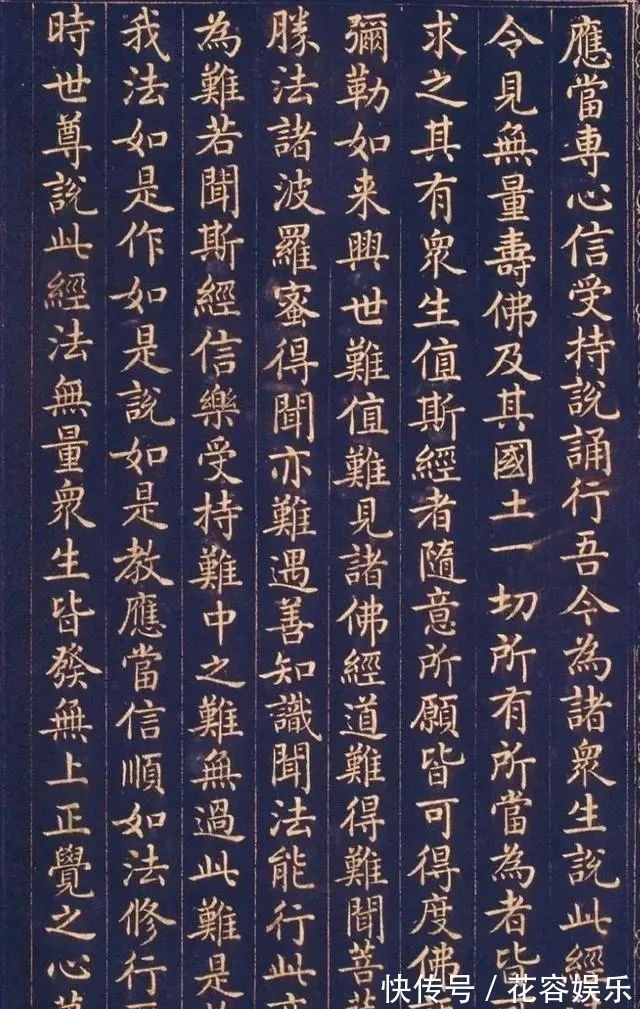 應當專心信受持說誦行吾今為諸衆生說此經
令見無量壽佛及其國土一切所有所當為者皆
求之其有衆生值斯經者隨意所願皆可得度佛
彌勒如来興世難值難見諸佛經道難得難聞菩
勝法諸波羅蜜得聞亦難遇善知識聞法能行此
為難若聞斯經信樂受持難中之難無過此難是
我法如是作如是說如是教應當信順如法修行
時世尊說此經法無量衆生皆發無上正覺之心
快传号 / 花容娱乐